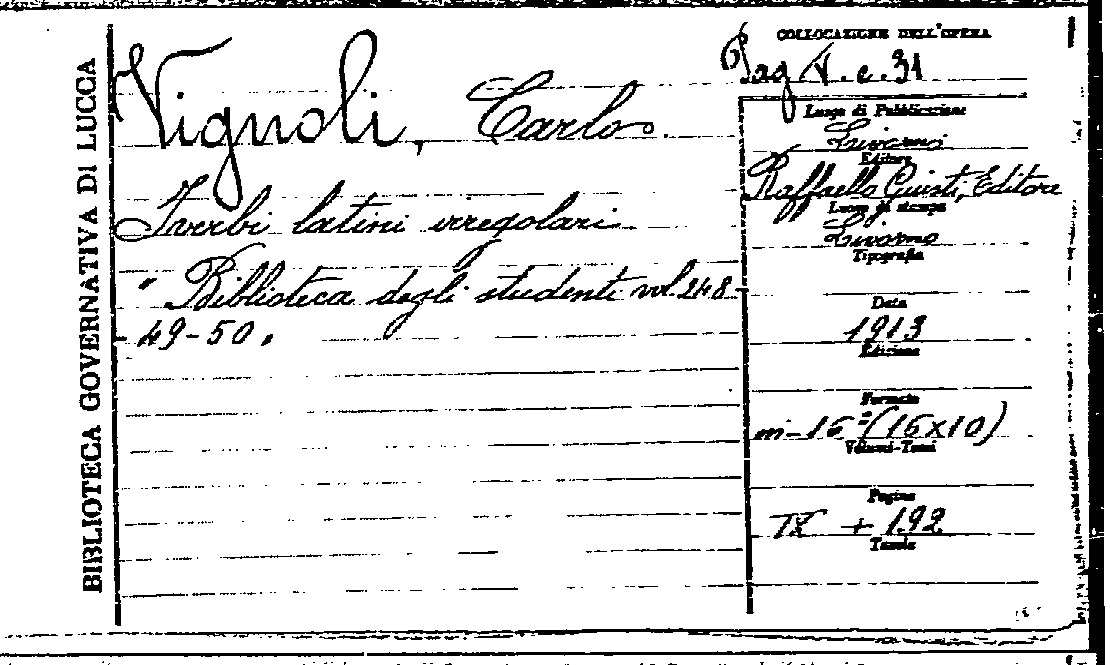 BIBLIOTECA GOVERNATIVA DI LUCCA
Vignoli, Carlo.
I verbi latini irregolari
" Biblioteca degli studenti vol. 248-
- 49-50.
COLLOCAZIONE DELL'OPERA
Pag V. c. 31
Luogo di Pubblicazione
Livorno
Editore
Raffaello Giusti, Editore
Luogo di stampa
Livorno
Tipografia
Data
1913
Edizione
Formato
in-16º (16x10)
Volumi-Tomi
Pagine
IX + 192
Tavole